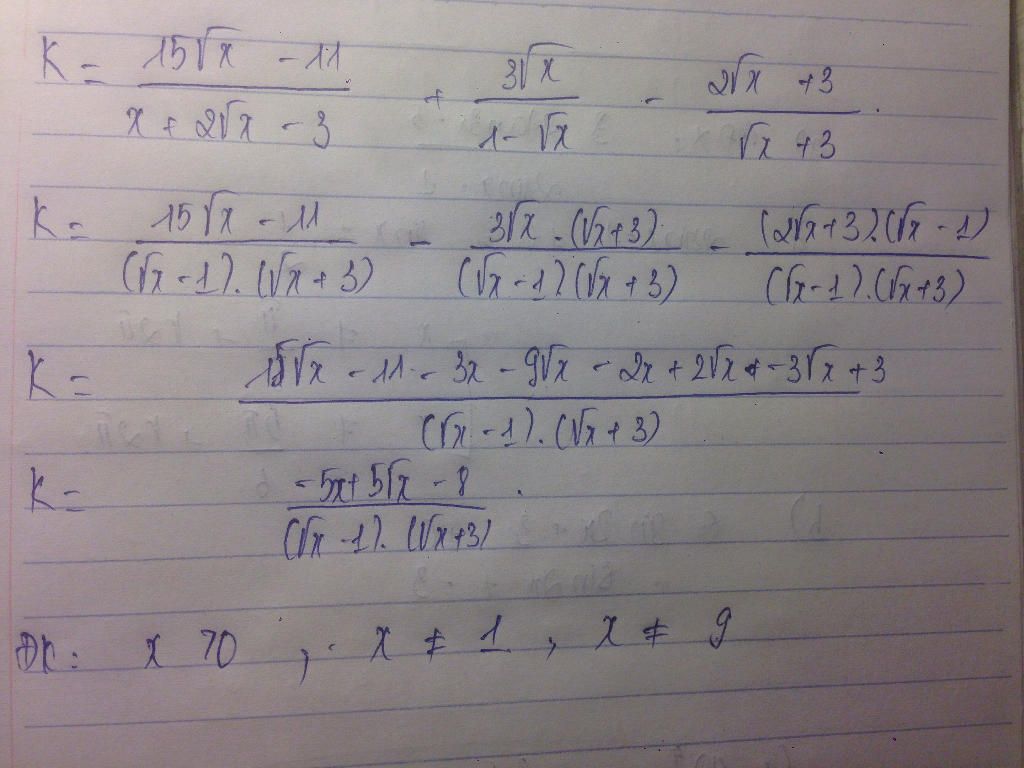 K = \frac{15\sqrt{x} - 11}{x + 2\sqrt{x} - 3} + \frac{3\sqrt{x}}{1 - \sqrt{x}} - \frac{2\sqrt{x} + 3}{\sqrt{x} + 3}.
K = \frac{15\sqrt{x} - 11}{(\sqrt{x} - 1).(\sqrt{x} + 3)} - \frac{3\sqrt{x}.(\sqrt{x}+3)}{(\sqrt{x} - 1).(\sqrt{x} + 3)} - \frac{(2\sqrt{x}+3).(\sqrt{x} - 1)}{(\sqrt{x} - 1).(\sqrt{x}+3)}
K = \frac{15\sqrt{x} - 11 - 3x - 9\sqrt{x} - 2x + 2\sqrt{x} + -3\sqrt{x} + 3}{(\sqrt{x} - 1).(\sqrt{x} + 3)}
K = \frac{-5x + 5\sqrt{x} - 8}{(\sqrt{x} - 1).(\sqrt{x}+3)}.
ĐK: x > 0, x ≠ 1, x ≠ 9